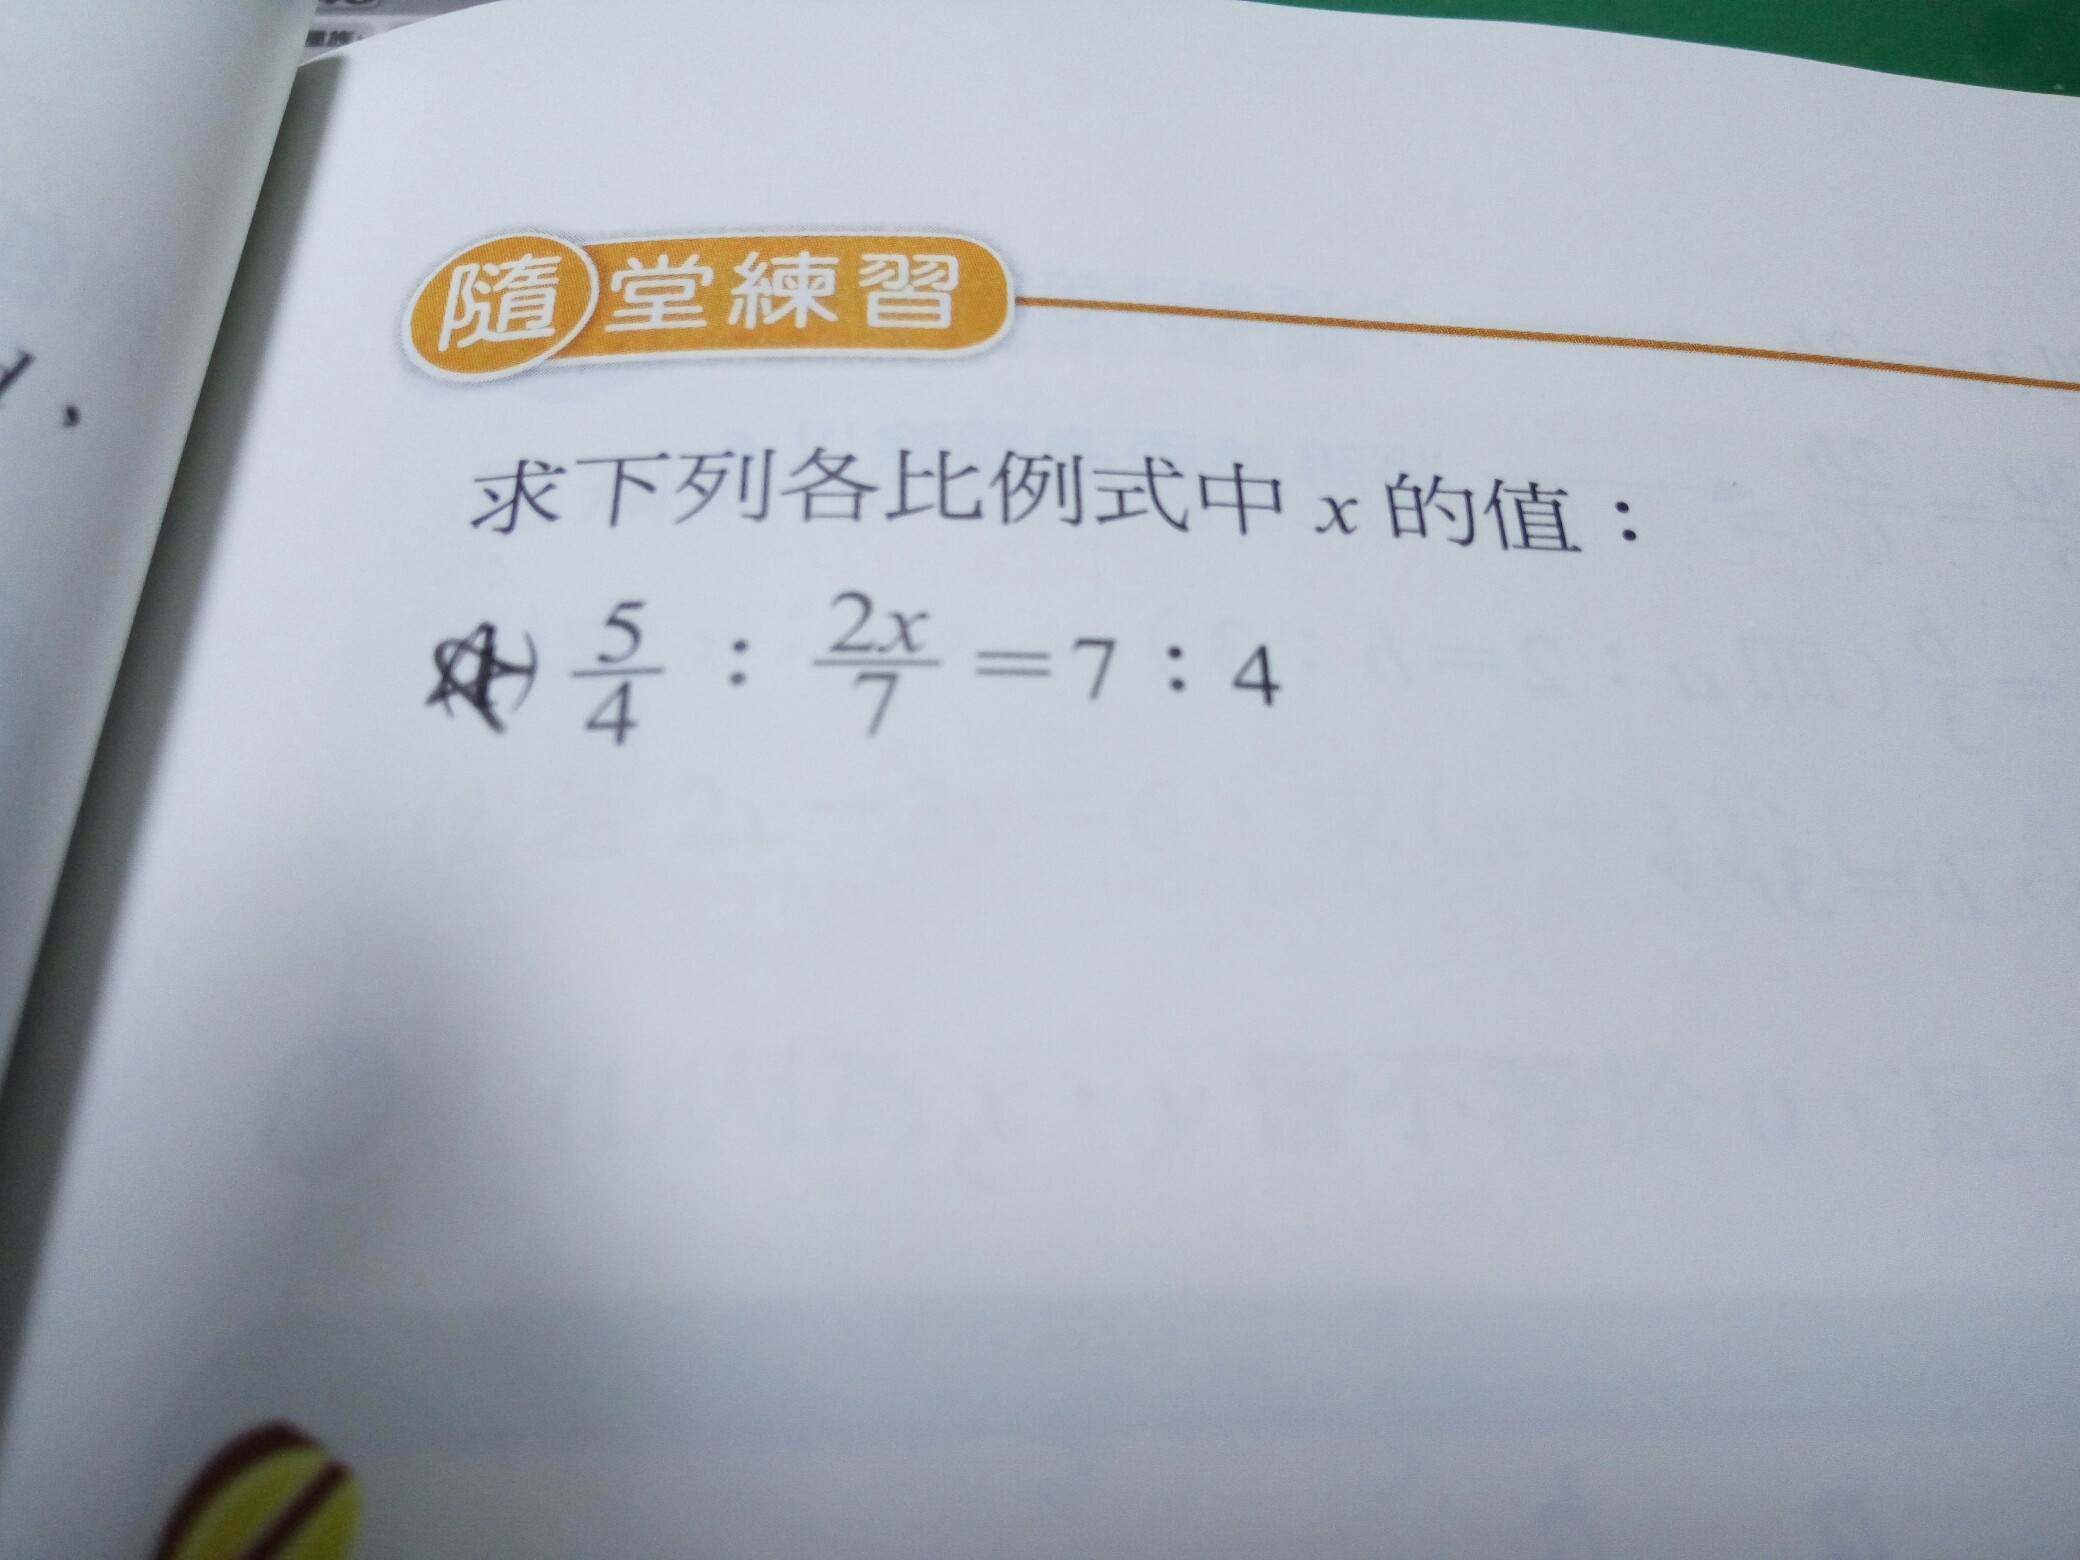 隨堂練習
求下列各比例式中 x 的值：
5/4 : 2x/7 = 7 : 4